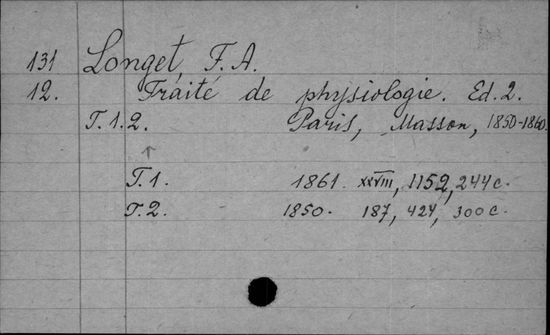 131 Longet F. A.
12. Traité de physiologie. Ed. 2.
T. 1. 2. Paris, Masson, 1850-1860.
↑
T. 1. 1861. xxviii, 1152, 244 c.
T. 2. 1850. 187, 424, 300 c.